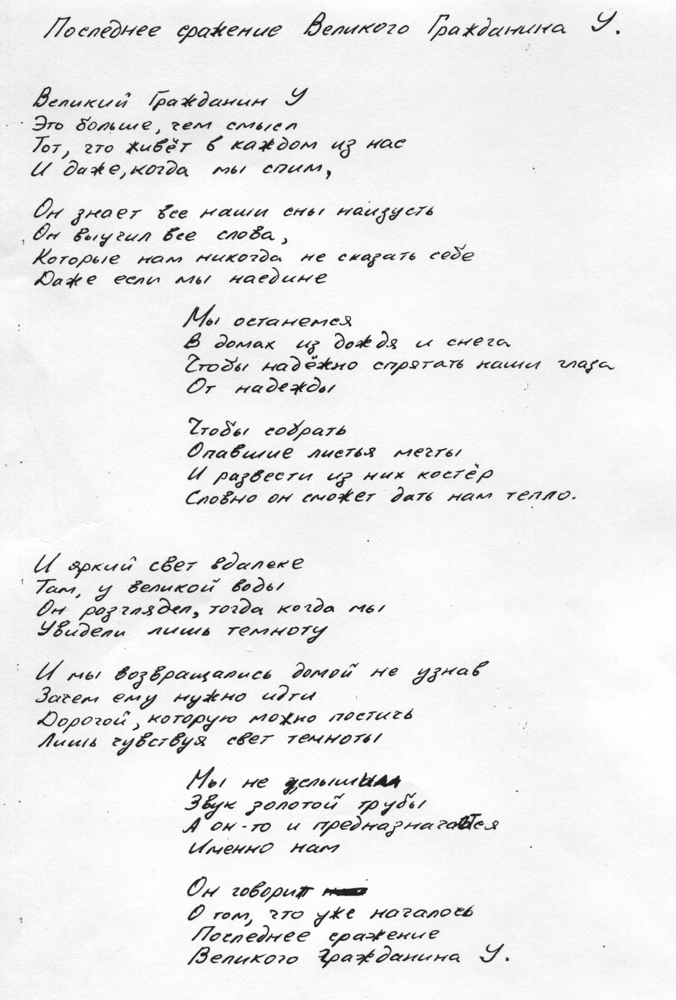 Последнее сражение Великого Гражданина У.
Великий Гражданин У
Это больше, чем смысл
Тот, что живёт в каждом из нас
И даже, когда мы спим,
Он знает все наши сны наизусть
Он выучил все слова,
Которые нам никогда не сказать себе
Даже если мы наедине
Мы останемся
В домах из дождя и снега
Чтобы надёжно спрятать наши глаза
От надежды
Чтобы собрать
Опавшие листья мечты
И развести из них костёр
Словно он сможет дать нам тепло.
И яркий свет вдалеке
Там, у великой воды
Он розглядел, тогда когда мы
Увидели лишь темноту
И мы возвращались домой не узнав
Зачем ему нужно идти
Дорогой, которую можно постичь
Лишь чувствуя свет темноты
Мы не услышали
Звук золотой трубы
А он-то и предназначается
Именно нам
Он говорит
О том, что уже началось
Последнее сражение
Великого Гражданина У.